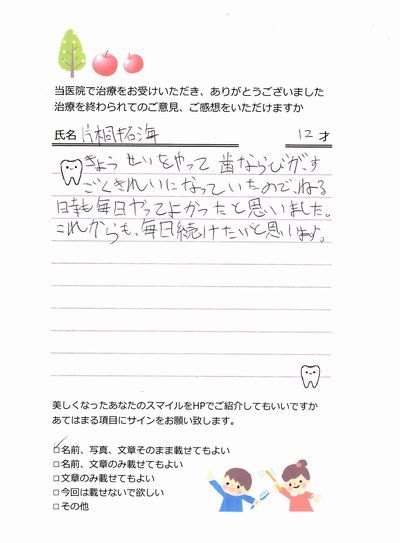 当医院で治療をお受けいただき、ありがとうございました
治療を終わられてのご意見、ご感想をいただけますか
氏名 片桐拓海 12才
きょうせいをやって歯ならびが、す
ごくきれいになっていたので、ねる
時も毎日やってよかったと思いました。
これからも、毎日続けたいと思います。
美しくなったあなたのスマイルをHPでご紹介してもいいですか
あてはまる項目にサインをお願い致します。
□名前、写真、文章そのまま載せてもよい
□名前、文章のみ載せてもよい
□文章のみ載せてもよい
□今回は載せないで欲しい
□その他